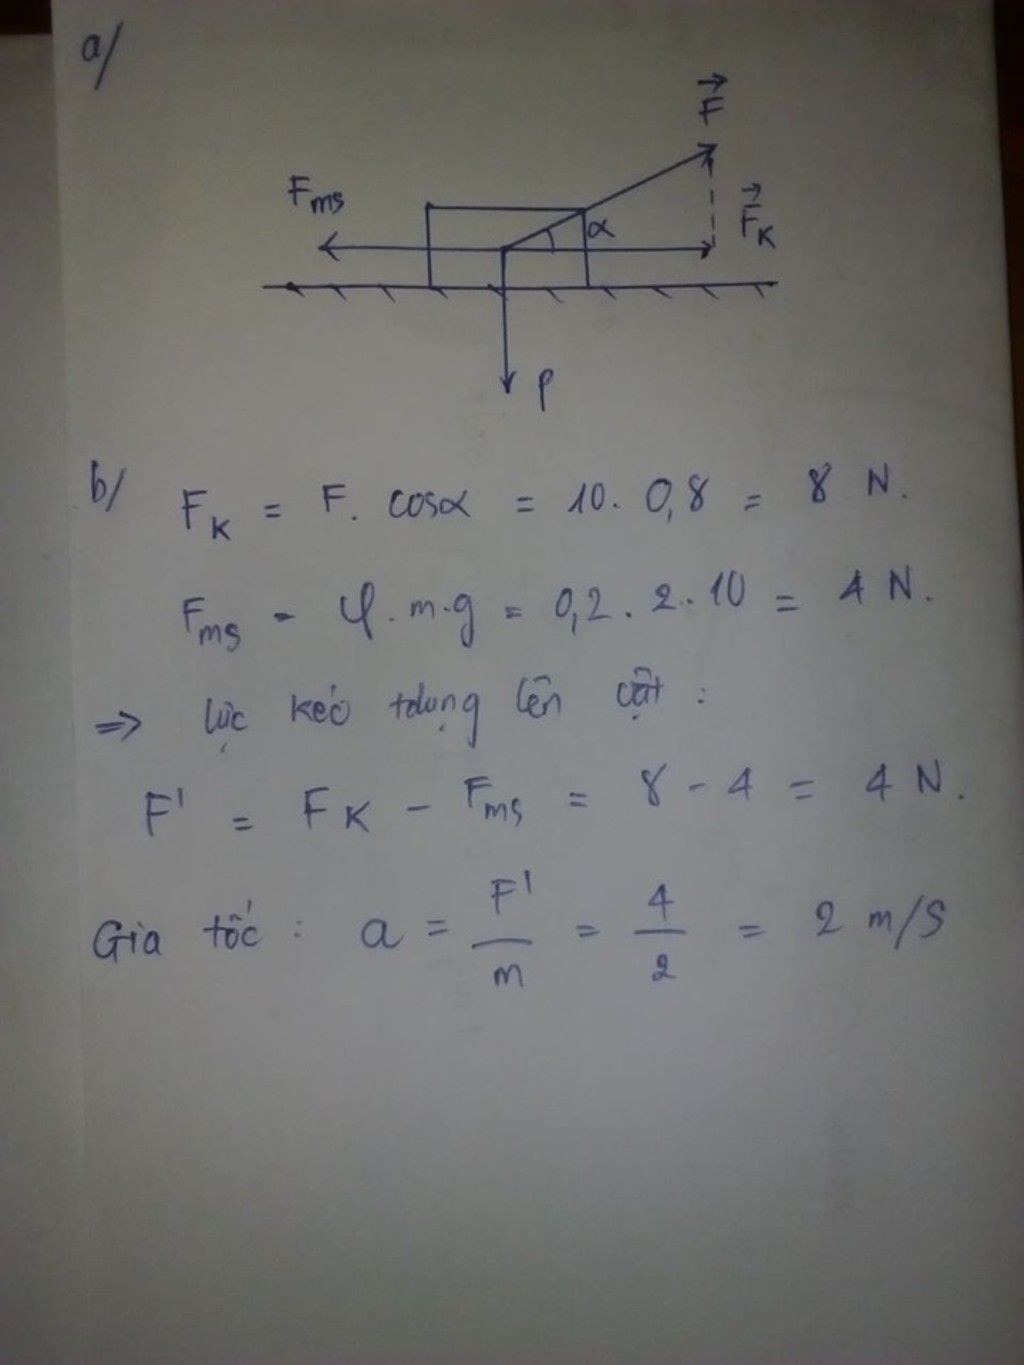 a/
F⃗
Fms
F⃗K
α
P
b/ FK = F. cosα = 10. 0,8 = 8 N.
Fms = φ. m.g = 0,2. 2. 10 = 4 N.
=> lực kéo tdụng lên vật :
F' = FK - Fms = 8 - 4 = 4 N.
Gia tốc : a = F'/m = 4/2 = 2 m/s